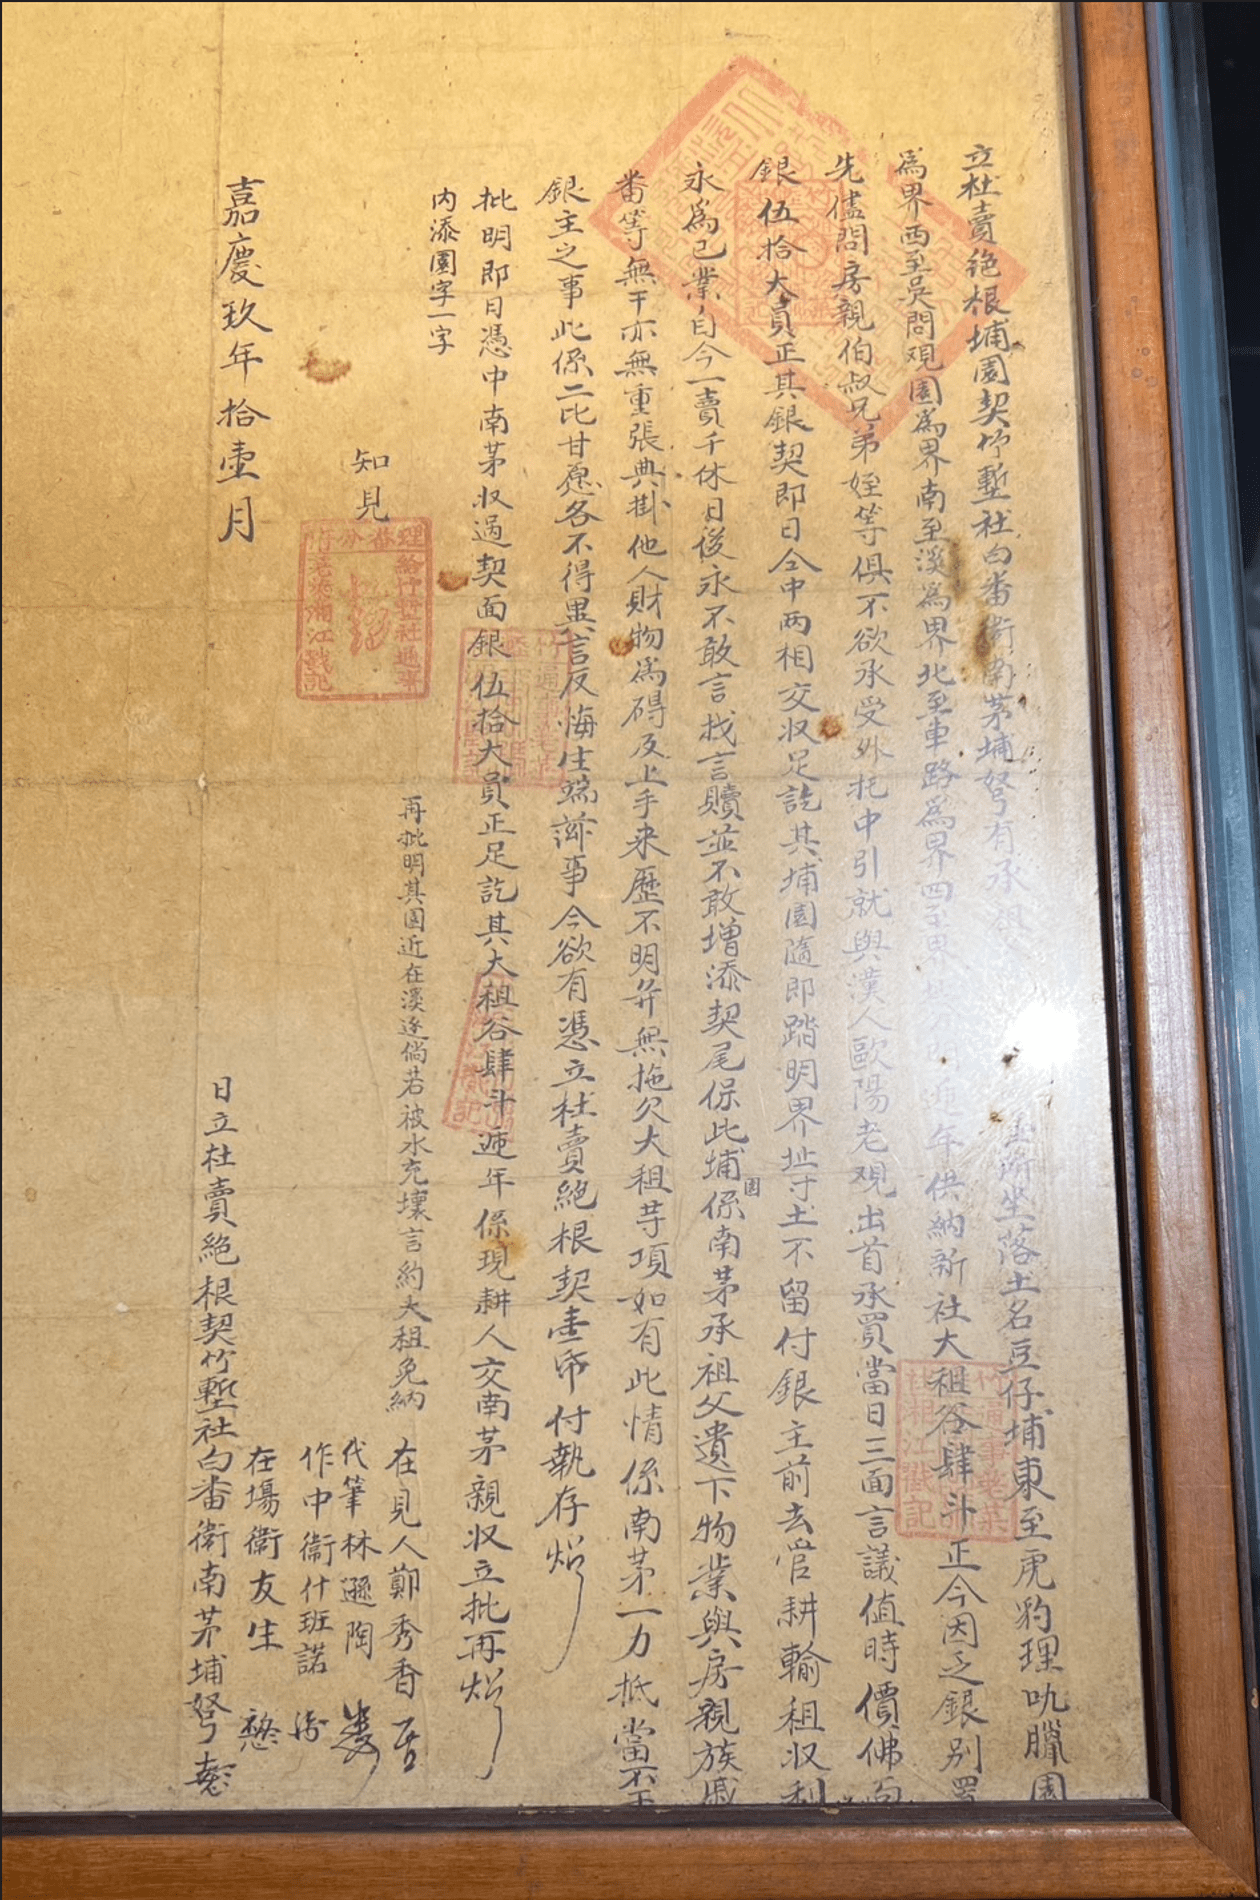 立杜賣絕根埔園契竹塹社白番衛南茅埔弩有承祖 坐落土名豆仔埔東至虎豹理叭臘園
為界西至吳問观園為界南至溪為界北至車路為界四至界 年供納新社大租谷肆斗正今因乏銀別置
先儘問房親伯叔兄弟姪等俱不欲承受外托中引就與漢人歐陽老观出首承買當日三面言議值時價佛面
銀伍拾大員正其銀契即日仝中两相交収足訖其埔園隨即踏明界址寸土不留付銀主前去管耕輸租収利
永為己業自今一賣千休日後永不敢言找言贖並不敢增添契尾保此埔園係南茅承祖父遺下物業與房親族戚
番等無干亦無重張典掛他人財物為碍及上手来歷不明并無拖欠大租等項如有此情係南茅一力抵當不干
銀主之事此係二比甘愿各不得異言反悔生端滋事今欲有憑立杜賣絕根契壹帋付執存炤
批明即日憑中南茅収過契面銀伍拾大員正足訖其大租谷肆斗逓年係現耕人交南茅親収立批再炤
內添園字一字
再批明其園近在溪邊倘若被水充壞言約大租免納
在見人鄭秀香
代筆林遜陶
知見
作中衛什班諾
在塲衛友生
嘉慶玖年拾壹月
日立杜賣絕根契竹塹社白番衛南茅埔弩
理番分府
給竹塹社通事
戳記